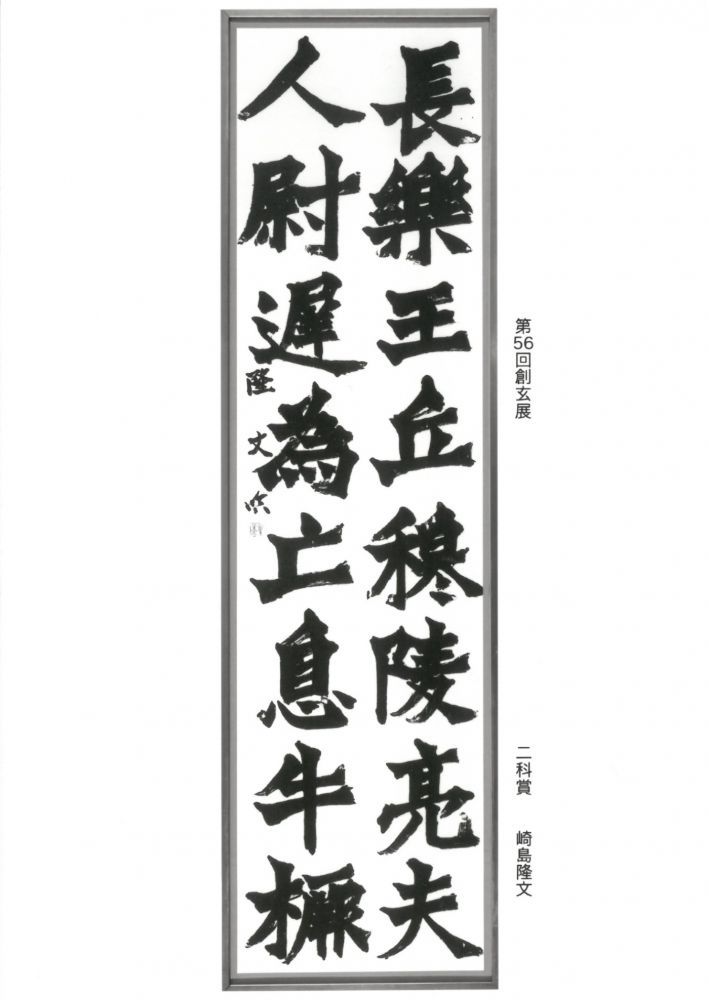 長樂王丘穆陵亮夫
人尉遲為亡息牛橛
隆文臨
第56回創玄展
二科賞　崎島隆文